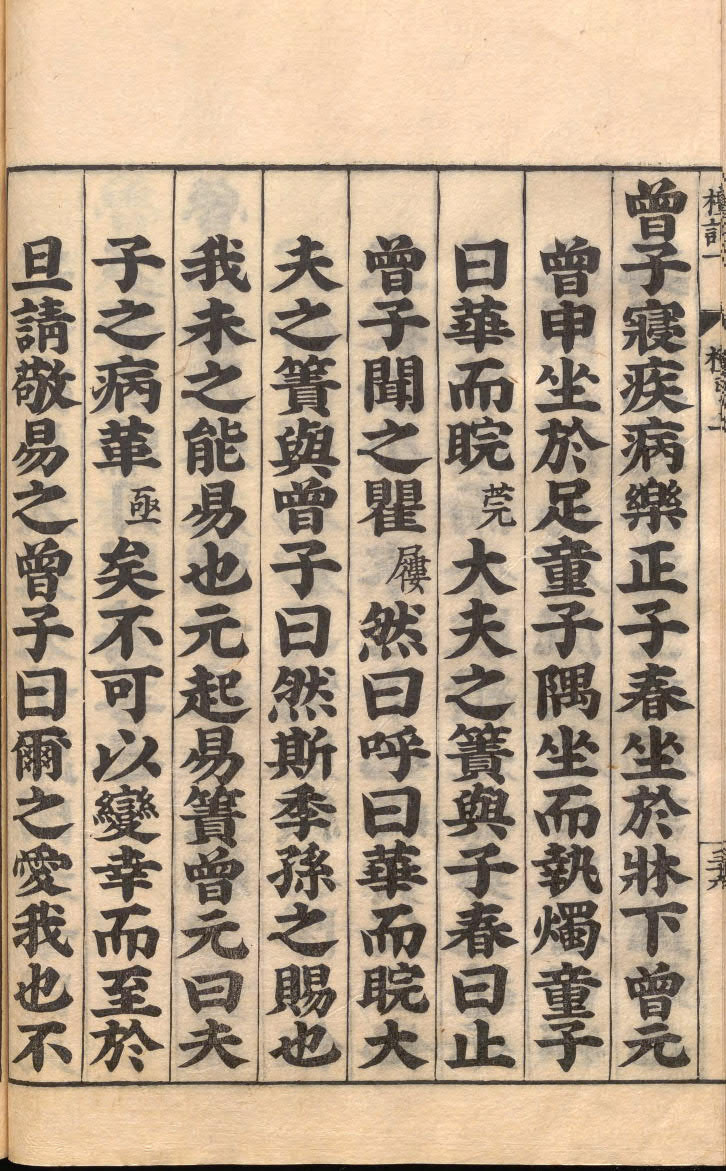 曾子寢疾病樂正子春坐於牀下曾元
曾申坐於足童子隅坐而執燭童子
曰華而睆莞大夫之簀與子春曰止
曾子聞之瞿屨然曰呼曰華而睆大
夫之簀與曾子曰然斯季孫之賜也
我未之能易也元起易簀曾元曰夫
子之病革亟矣不可以變幸而至於
旦請敬易之曾子曰爾之愛我也不